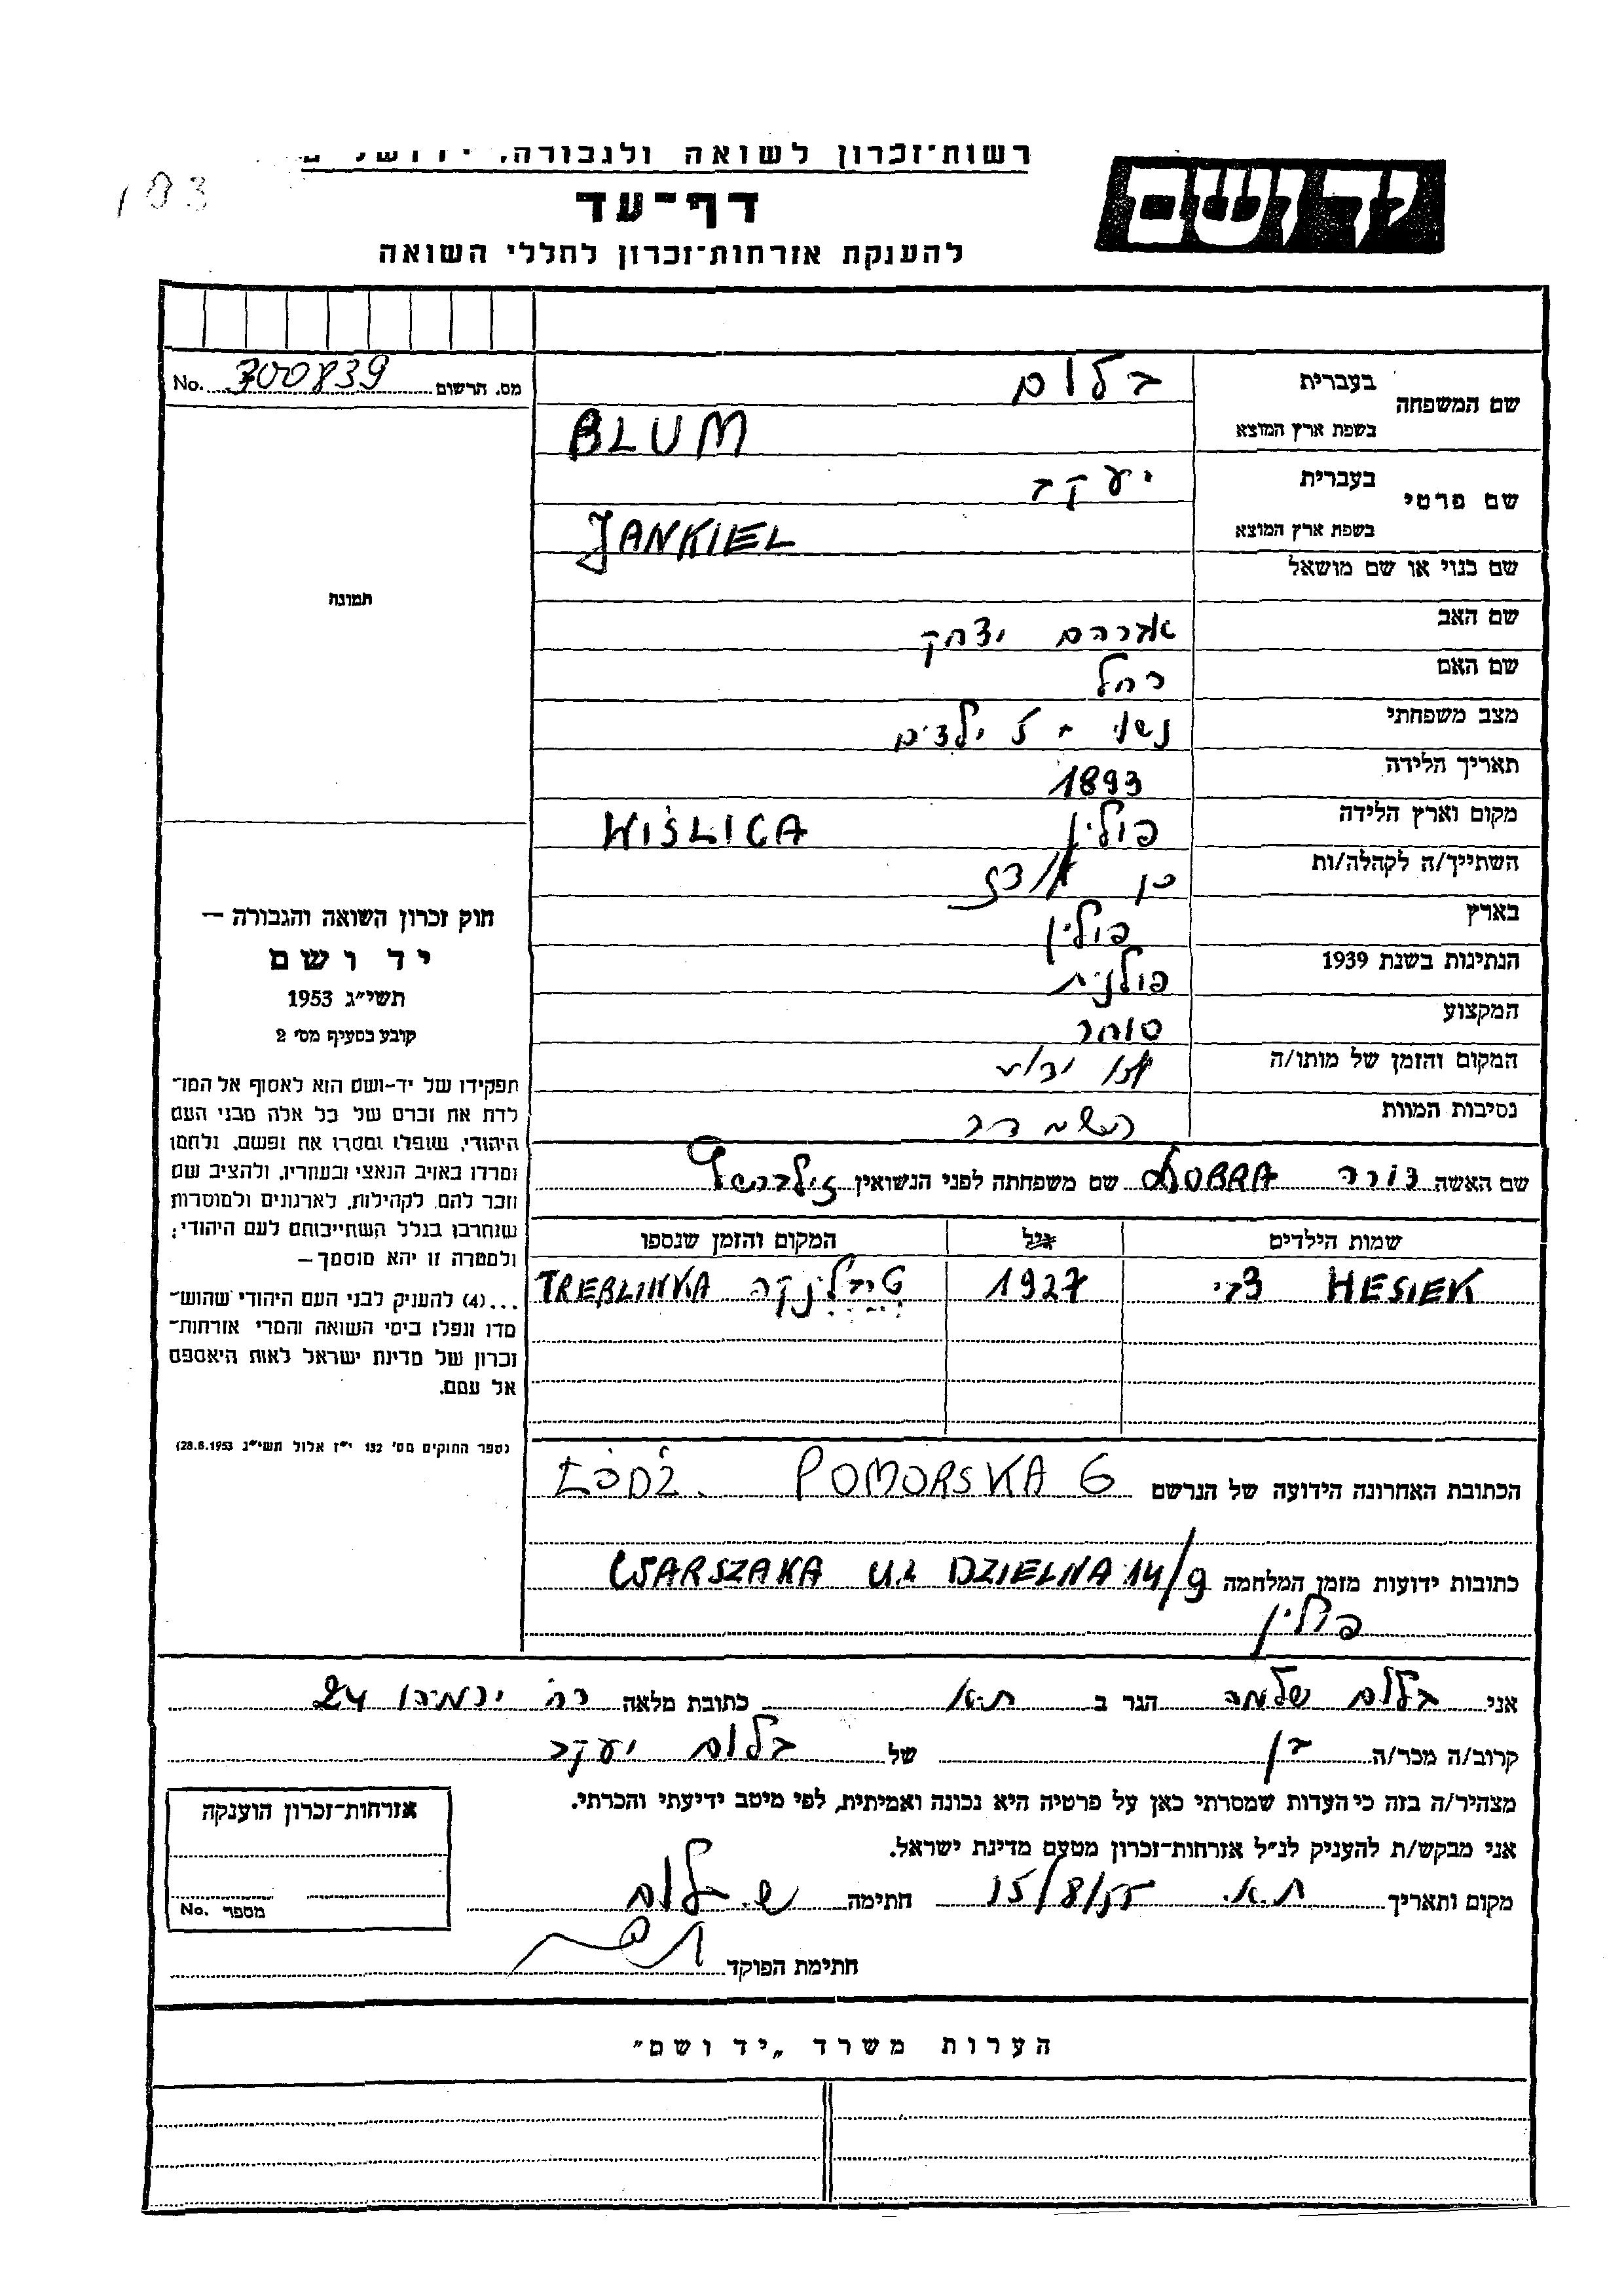 יד ושם
רשות־זכרון לשואה ולגבורה, ירושלים
דף־עד
להענקת אזרחות־זכרון לחללי השואה
103
מס. הרשום 300839 No.
שם המשפחה בעברית בלום
בשפת ארץ המוצא BLUM
שם פרטי בעברית יעקב
בשפת ארץ המוצא JANKIEL
שם כנוי או שם מושאל
שם האב אברהם יצחק
שם האם רחל
מצב משפחתי נשוי + 5 ילדים
תאריך הלידה 1893
מקום וארץ הלידה פולין WIŚLICA
השתייך/ה לקהלה/ות כן
בארץ פולין
הנתינות בשנת 1939 פולנית
המקצוע סוחר
המקום והזמן של מותו/ה לא ידוע
נסיבות המוות
שם האשה DOBRA שם משפחתה לפני הנשואין
שמות הילדים גיל המקום והזמן שנספו
HESIEK צבי 1927 טרבלינקה TREBLINKA
הכתובת האחרונה הידועה של הנרשם ŁÓDŹ. POMORSKA 6
כתובות ידועות מזמן המלחמה WARSZAKA UL DZIELNA 14/9
פולין
תמונה
חוק זכרון השואה והגבורה —
יד ושם
תשי״ג 1953
קובע בסעיף מס׳ 2
תפקידו של יד-ושם הוא לאסוף אל המו־
לדת את זכרם של כל אלה מבני העם
היהודי, שנפלו ומסרו את נפשם, נלחמו
ומרדו באויב הנאצי ובעוזריו, ולהציב שם
וזכר להם, לקהילות, לארגונים ולמוסדות
שנחרבו בגלל השתייכותם לעם היהודי;
ולמטרה זו יהא מוסמך —
...(4) להעניק לבני העם היהודי שהוש־
מדו ונפלו בימי השואה והמרי אזרחות־
זכרון של מדינת ישראל לאות היאספם
אל עמם.
(ספר החוקים מס׳ 132 י״ז אלול תשי״ג 28.8.1953)
אני בלום שלמה הגר ב ת.א. כתובת מלאה רח׳ ירמיהו 24
קרוב/ה מכר/ה בן של בלום יעקב
מצהיר/ה בזה כי העדות שמסרתי כאן על פרטיה היא נכונה ואמיתית, לפי מיטב ידיעתי והכרתי.
אני מבקש/ת להעניק לנ״ל אזרחות־זכרון מטעם מדינת ישראל.
מקום ותאריך ת.א. 15/8/55 חתימה ש. בלום
חתימת הפוקד
אזרחות־זכרון הוענקה
מספר No.
הערות משרד „יד ושם״